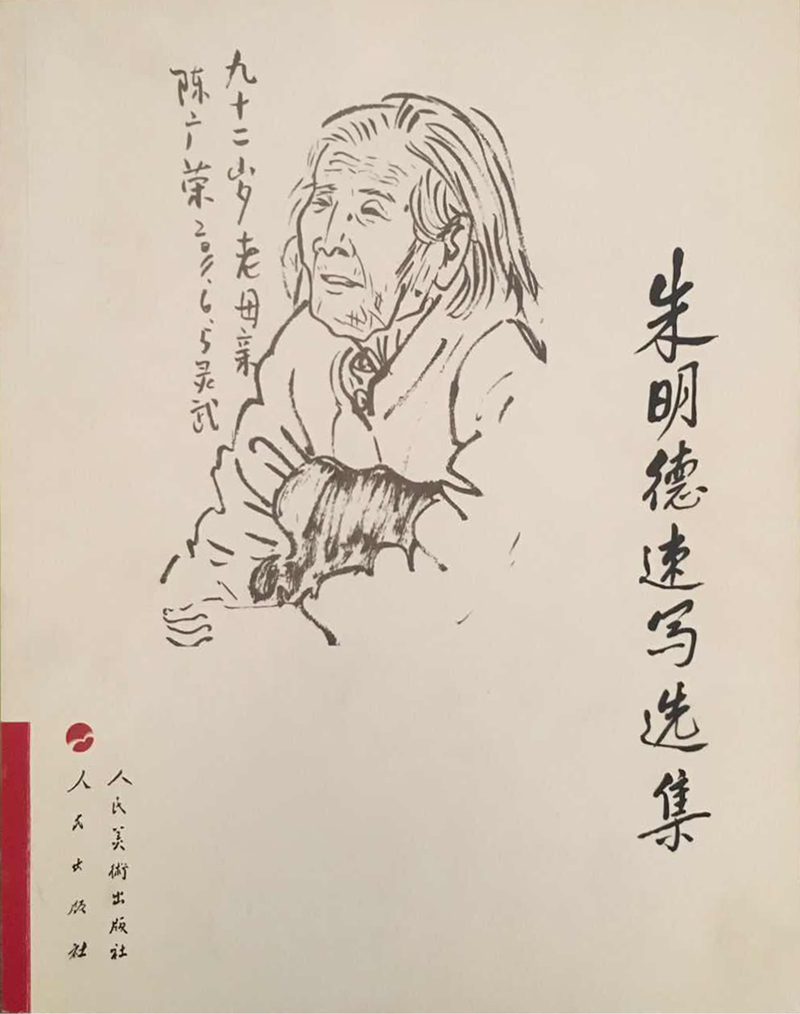 朱明德速写选集
九十二岁老母亲
陈广荣 .6.5灵武
人民美術出版社
人民出版社